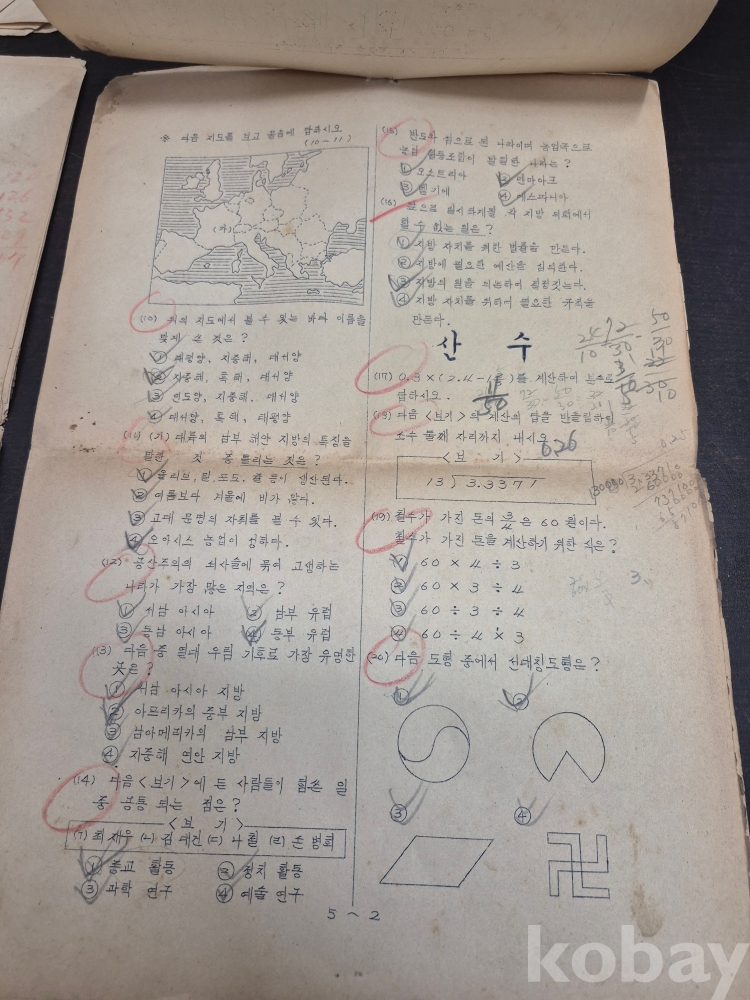 ※ 다음 지도를 보고 물음에 답하시오
(10~11)
(가)
(10) 위의 지도에서 볼 수 있는 바다 이름을
맞게 쓴 것은?
① 태평양, 지중해, 대서양
② 지중해, 흑해, 대서양
③ 인도양, 지중해, 대서양
④ 대서양, 흑해, 태평양
(11) (가) 대륙의 남부 해안 지방의 특징을
말한 것 중 틀리는 것은?
① 올리브, 밀, 포도, 귤 등이 생산된다.
② 여름보다 겨울에 비가 많다.
③ 고대 문명의 자취를 볼 수 있다.
④ 오아시스 농업이 성하다.
(12) 공산주의의 쇠사슬에 묶여 고생하는
나라가 가장 많은 지역은?
① 서남 아시아 ② 남부 유럽
③ 동남 아시아 ④ 동부 유럽
(13) 다음 중 열대 우림 기후로 가장 유명한
곳은?
① 서남 아시아 지방
② 아프리카의 중부 지방
③ 남아메리카의 남부 지방
④ 지중해 연안 지방
(14) 다음 <보기>에 든 사람들이 힘쓴 일
중 공통 되는 점은?
<보 기>
(ㄱ) 최제우 (ㄴ) 김대건 (ㄷ) 나철 (ㄹ) 손병희
① 종교 활동 ② 정치 활동
③ 과학 연구 ④ 예술 연구
(15) 반도와 섬으로 된 나라이며 농업국으로
농업 협동조합이 발달한 나라는?
① 오스트리아 ② 덴마아크
③ 벨기에 ④ 에스파니아
(16) 앞으로 실시하게될 각 지방 의회에서
할 수 없는 일은?
① 지방 자치를 위한 법률을 만든다.
② 지방에 필요한 예산을 심의한다.
③ 지방의 일을 의논하여 결정짓는다.
④ 지방 자치를 위하여 필요한 규칙을
만든다.
산 수
(17) 0.3 × (2.4 - ) 를 계산하여 분수로
답하시오.
11/50
(18) 다음 <보기>의 계산의 답을 반올림하여
소수 둘째 자리까지 내시오
0.26
<보 기>
13 ) 3.3371
(19) 철수가 가진 돈의 3/4은 60 원이다.
철수가 가진 돈을 계산하기 위한 식은?
① 60 × 4 ÷ 3
② 60 × 3 ÷ 4
③ 60 ÷ 3 ÷ 4
④ 60 ÷ 4 × 3
(20) 다음 도형 중에서 선대칭도형은?
①
②
③
④
5 ~ 2
kobay